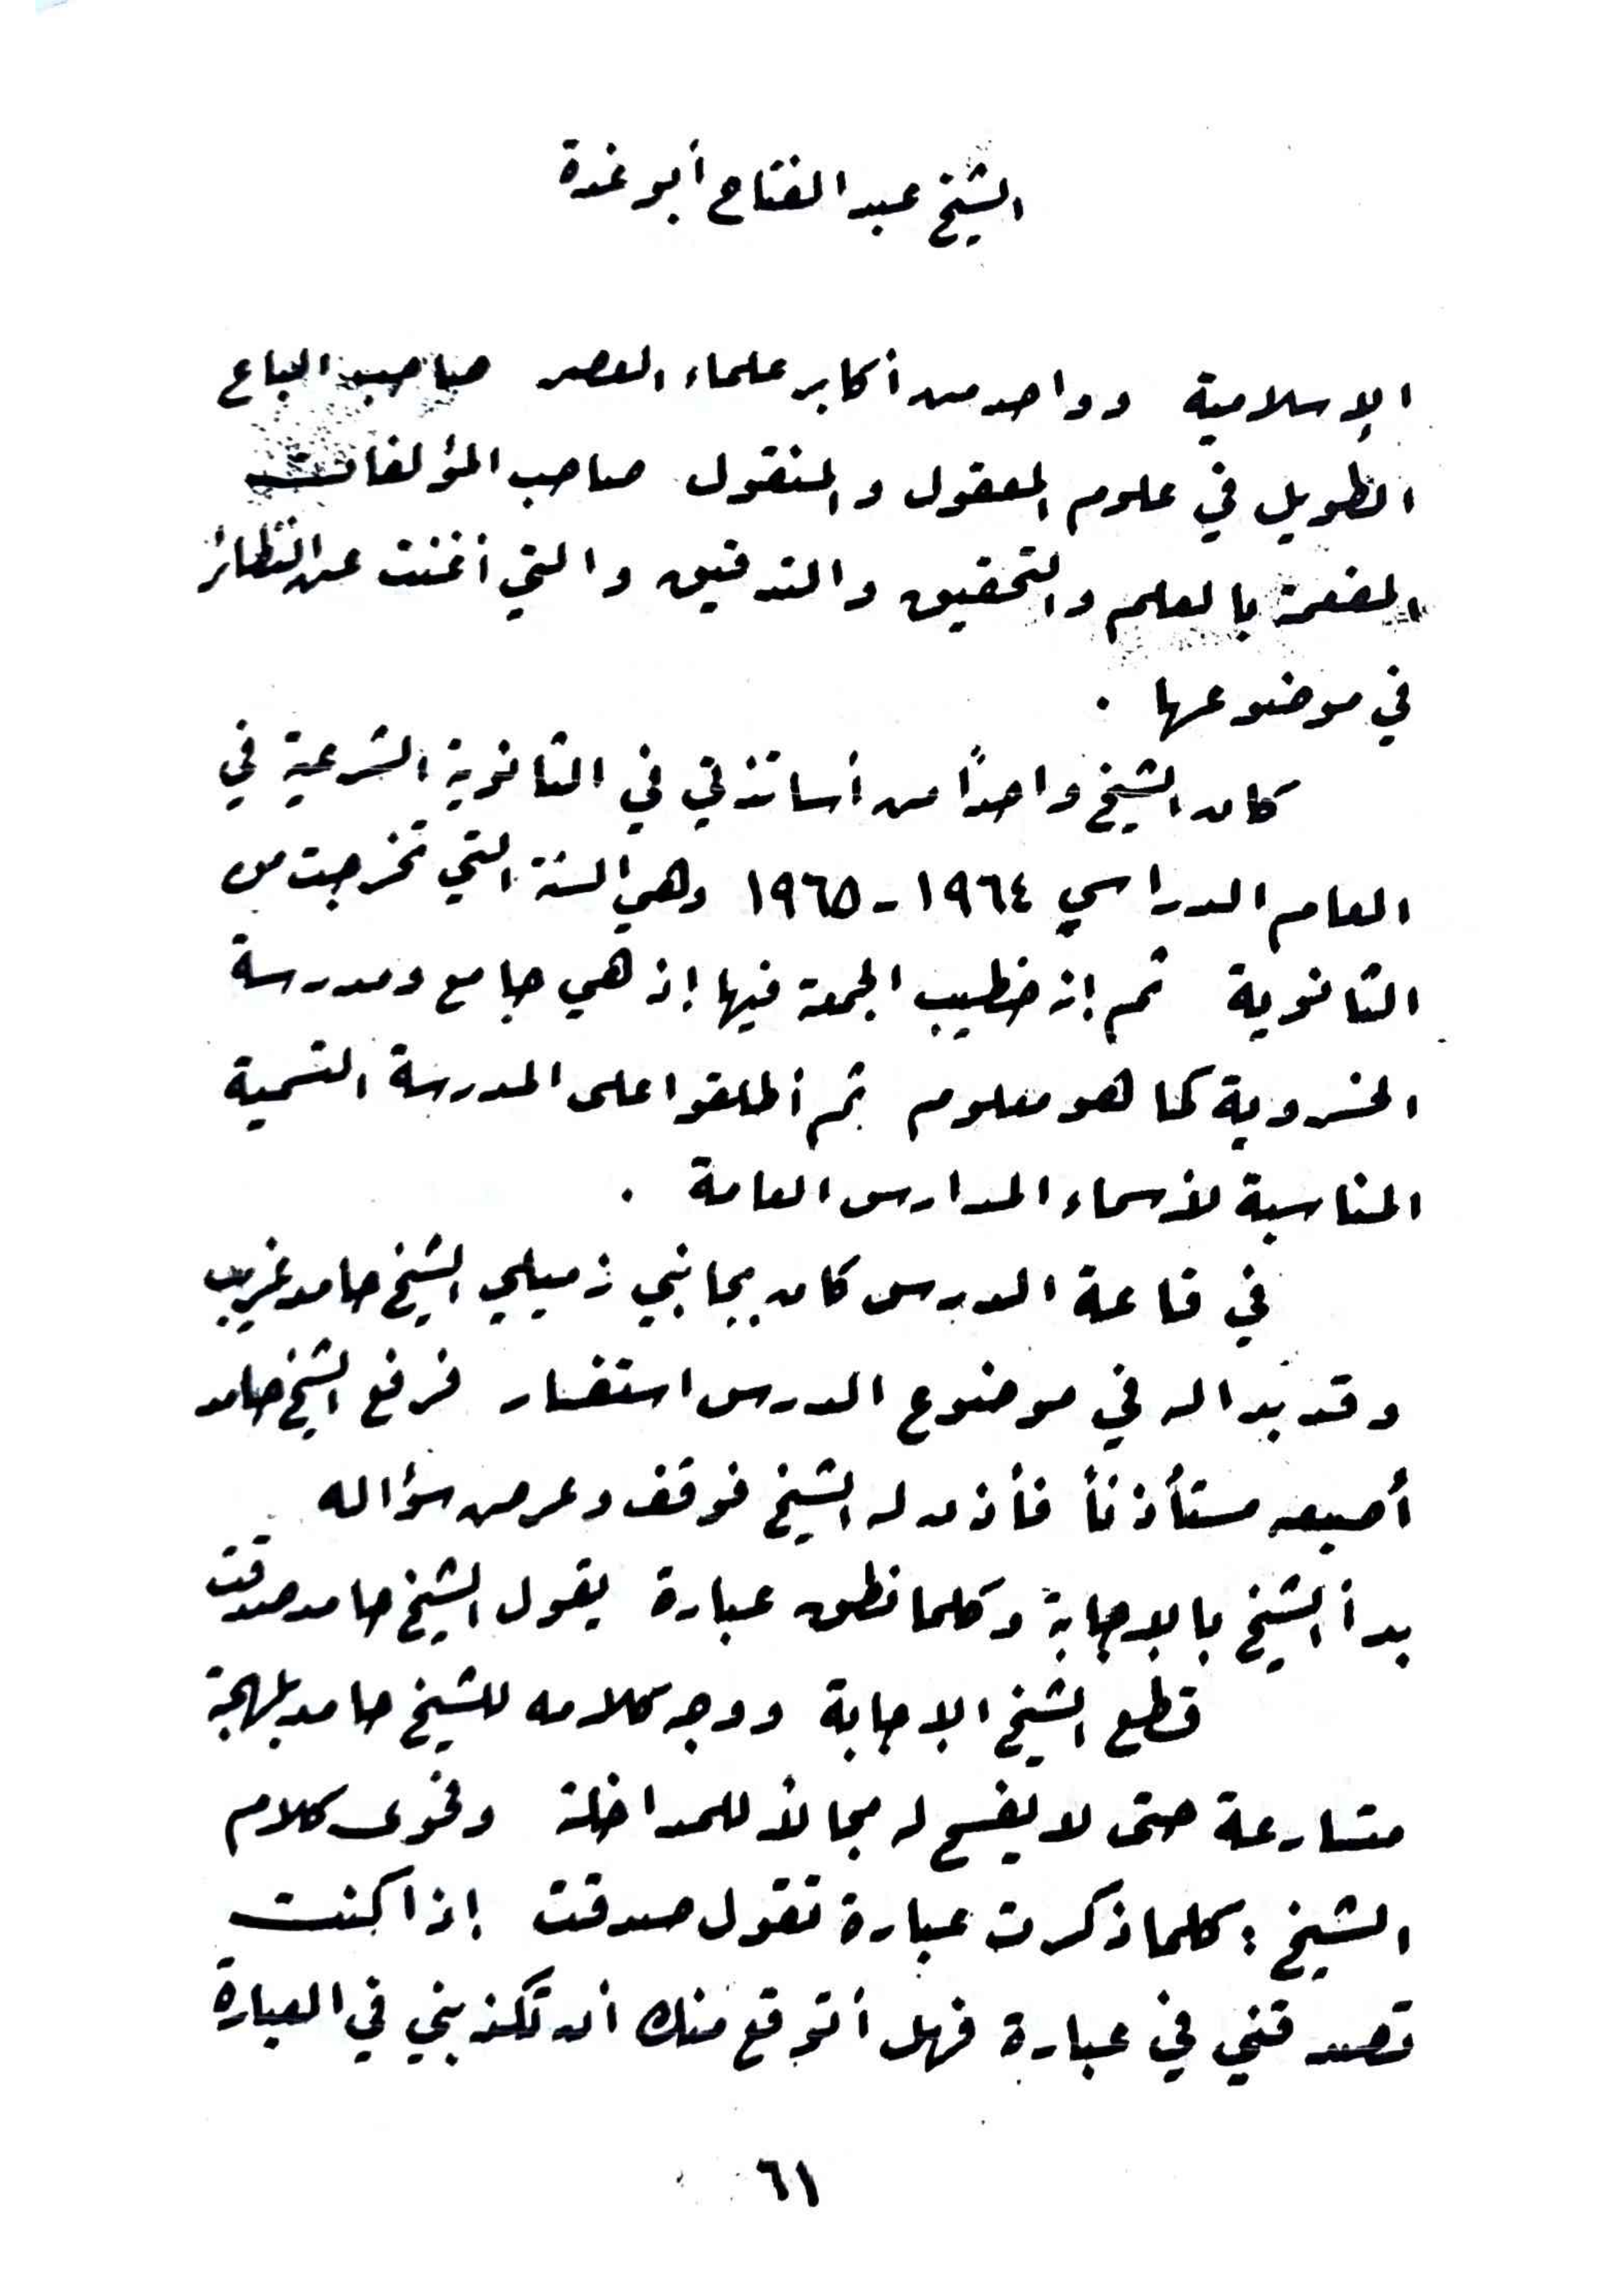 الشيخ عبد الفتاح أبو غدة
الإسلامية وواحد من أكابر علماء العصر صاحب الباع
الطويل في علوم المعقول والمنقول صاحب المؤلفات
المفعمة بالعلم والتحقيق والتدقيق والتي أغنت عن النظائر
في موضوعها .
كان الشيخ واحدًا من أساتذتي في الثانوية الشرعية في
العام الدراسي ١٩٦٤ - ١٩٦٥ وهي السنة التي تخرجت من
الثانوية ثم إنه خطيب الجمعة فيها إذ هي جامع ومدرسة
الخسروية كما هو معلوم ثم أطلقوا على المدرسة التسمية
المناسبة لأسماء المدارس العامة .
في قاعة الدرس كان بجانبي زميلي الشيخ حامد غريب
وقد بدا له في موضوع الدرس استفسار فرفع الشيخ حامد
أصبعه مستأذنأ فأذن له الشيخ فوقف وعرض سؤاله
بدأ الشيخ بالإجابة وكلما نطق عبارة يقول الشيخ حامد صدقت
قطع الشيخ الإجابة ووجه كلامه للشيخ حامد بلهجة
متسارعة حتى لا يفسح له مجالاً للمداخلة وفحوى كلام
الشيخ : كلما ذكرت عبارة تقول صدقت إذا كنت
تصدقني في عبارة فهل أتوقع منك أن تكذبني في العبارة
٦١